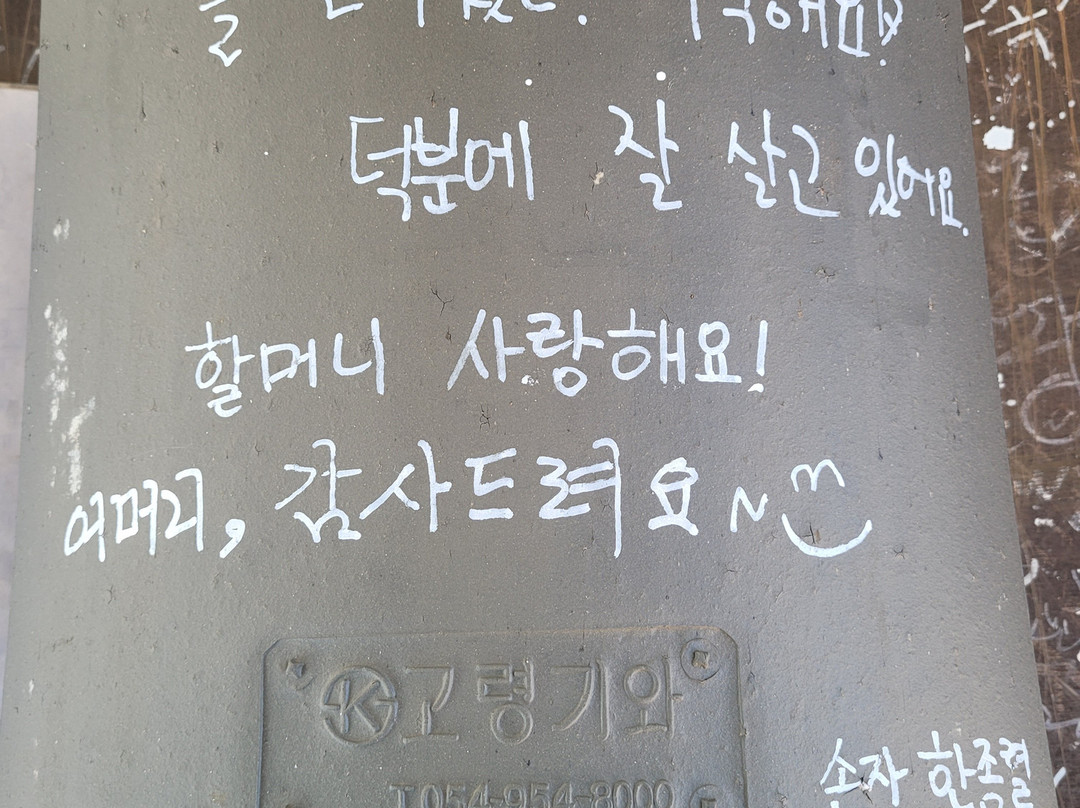 덕분에 잘 살고 있어요.
할머니 사랑해요!
어머니, 감사드려요~
고령기와
T.054-954-8000
손자 한조렬